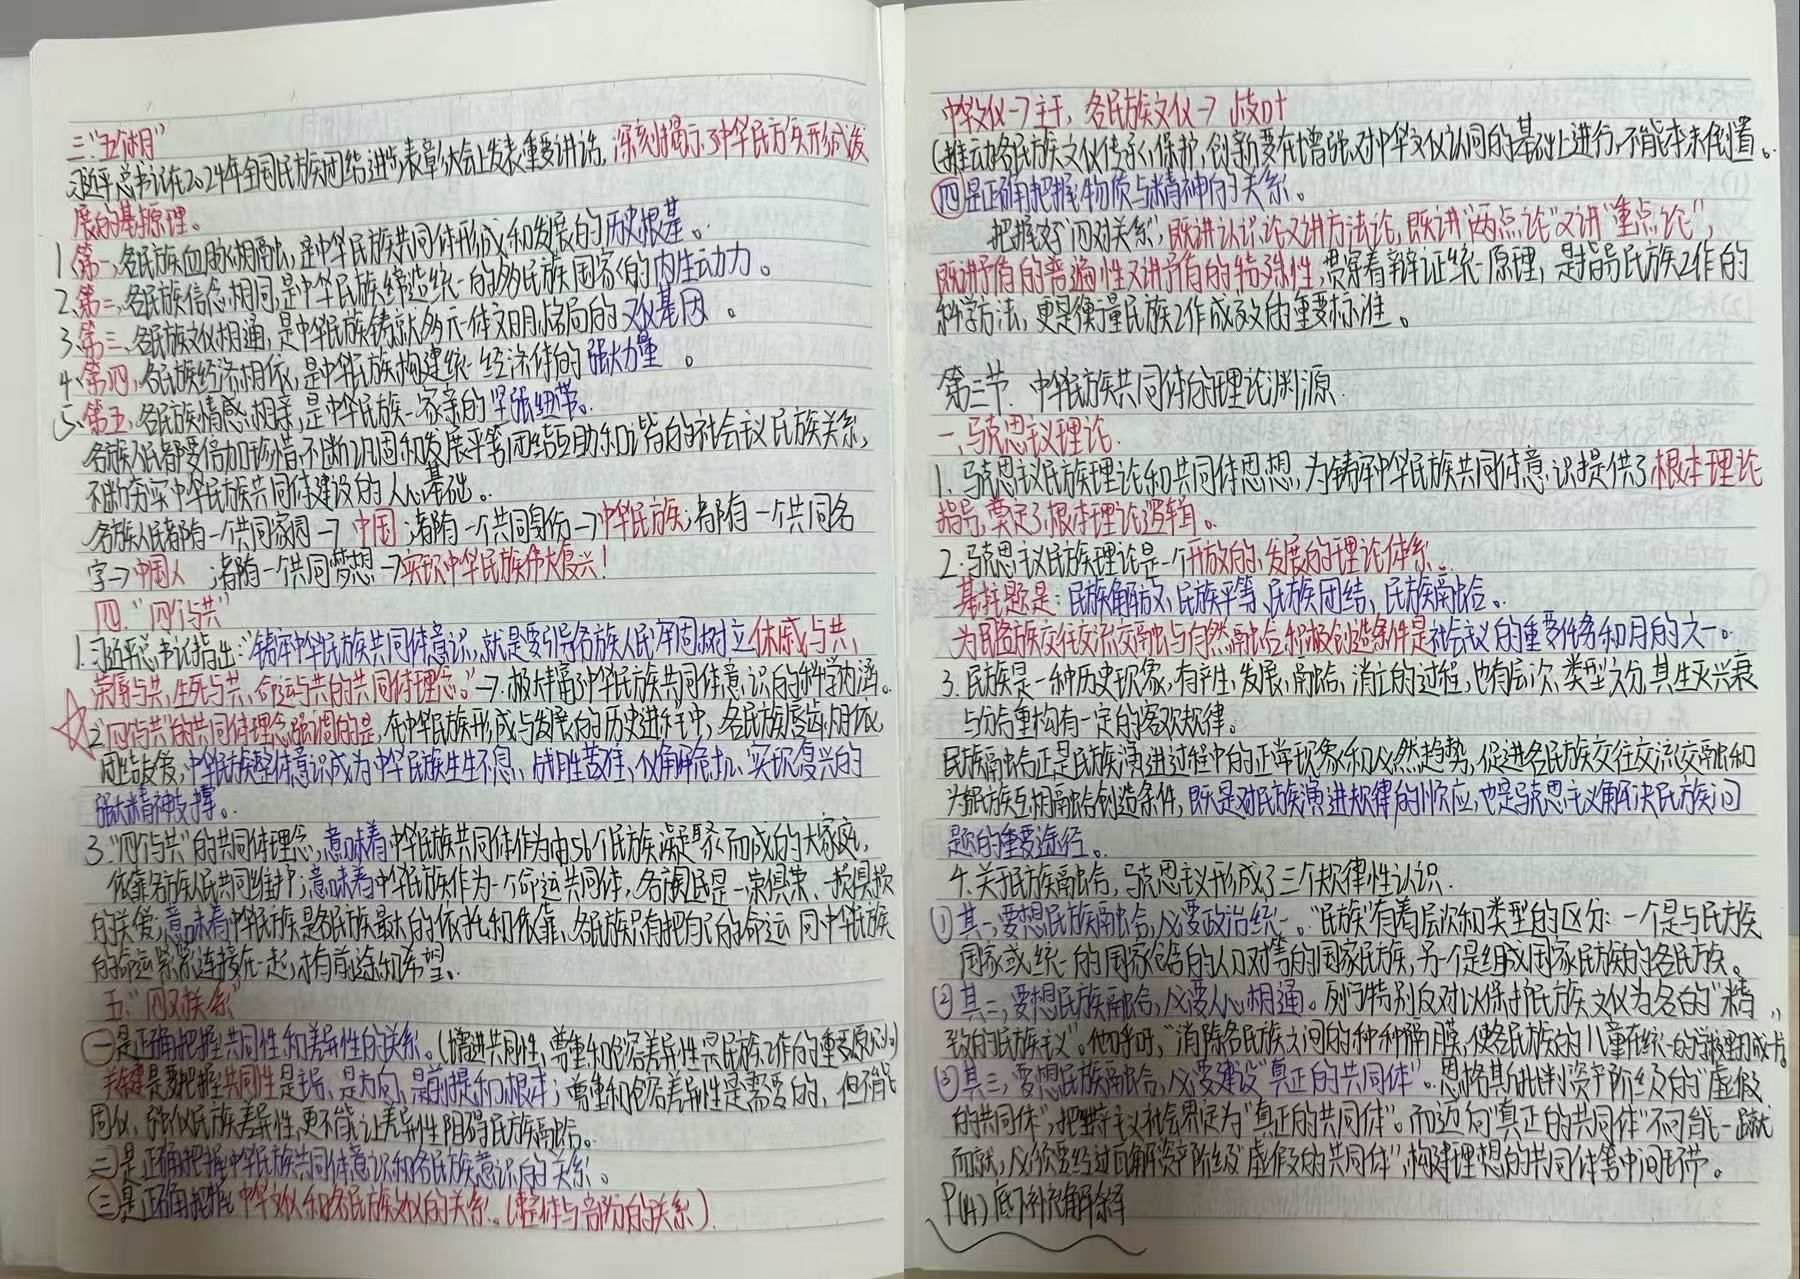 三."五个相"
习近平总书记在2024年全国民族团结进步表彰大会上发表重要讲话,深刻揭示了中华民族形成发
展的基本原理。
1.第一、各民族血脉相融,是中华民族共同体形成和发展的历史根基。
2.第二、各民族信念相同,是中华民族缔造统一的多民族国家的内生动力。
3.第三、各民族文化相通,是中华民族铸就多元一体文明格局的文化基因。
4.第四,各民族经济相依,是中华民族构建统一经济体的强大力量。
5.第五、各民族情感相亲,是中华民族一家亲的坚强纽带。
各族人民都要倍加珍惜,不断巩固和发展平等团结互助和谐的社会主义民族关系,
不断夯实中华民族共同体建设的人心基础。
各族人民都有一个共同家园→中国;都有一个共同身份→中华民族;都有一个共同名
字→中国人;都有一个共同梦想→实现中华民族伟大复兴!
四."四个与共"
1.习近平总书记指出:"铸牢中华民族共同体意识,就是要引导各族人民牢固树立休戚与共、
荣辱与共,生死与共、命运与共的共同体理念。"→极大丰富了中华民族共同体意识的科学内涵。
2."四个与共"的共同体理念强调的是,在中华民族形成与发展的历史进程中,各民族唇齿相依
团结友爱,中华民族整体意识成为中华民族生生不息、战胜苦难,化解危机、实现复兴的
强大精神支撑。
3."四个与共"的共同体理念,意味着中华民族共同体作为由56个民族凝聚而成的大家庭,
依靠各族人民共同维护;意味着中华民族作为一个命运共同体,各族人民是一荣俱荣、一损俱损
的关系;意味着中华民族是各民族最大的依托和依靠、各民族只有把自己的命运同中华民族
的命运紧紧连接在一起,才有前途和希望。
五."四对关系"
一是正确把握共同性和差异性的关系。(增进共同性,尊重和包容差异性是民族工作的重要原则)
关键是要把握共同性是主导、是方向、是前提和根本;尊重和包容差异性是需要的,但不能
固化、强化民族差异性,更不能让差异性阻碍民族融合。
二是正确把握中华民族共同体意识和各民族意识的关系。
三是正确把握中华文化和各民族文化的关系。(整体与部分的关系)
中华文化→主干,各民族文化→枝叶
(推动各民族文化传承、保护,创新要在增强对中华文化认同的基础上进行,不能本末倒置。
四是正确把握物质与精神的关系。
把握好"四对关系",既讲认识论又讲方法论,既讲"两点论"又讲"重点论",
既讲矛盾的普遍性又讲矛盾的特殊性,贯穿着辩证统一原理,是指导民族工作的
科学方法,更是衡量民族工作成效的重要标准。
第三节.中华民族共同体的理论渊源
一,马克思主义理论.
1.马克思主义民族理论和共同体思想,为铸牢中华民族共同体意识提供了根本理论
指导,奠定了根本理论逻辑。
2.马克思主义民族理论是一个开放的、发展的理论体系。
基本主题是:民族解放、民族平等、民族团结、民族融合。
为民各族交往交流交融与自然融合积极创造条件是社会主义的重要任务和目的之一。
3.民族是一种历史现象,有产生,发展,融合,消亡的过程,也有层次、类型之分,其生灭兴衰
与分合重构有一定的客观规律。
民族融合正是民族演进过程中的正常现象和必然趋势,促进各民族交往交流交融和
为各民族互相融合创造条件,既是对民族演进规律的顺应,也是马克思主义解决民族问
题的重要途径。
4.关于民族融合,马克思主义形成了三个规律性认识.
①其一,要想民族融合,必要政治统一。"民族"有着层次和类型的区分:一个是与民族
国家或统一的国家包含的人口对等的国家民族,另一个是组成国家民族的各民族。
②其二,要想民族融合,必要人心相通。列宁特别反对以保护民族文化为名的"精
致的民族主义"。他呼吁,"消除各民族之间的种种隔膜,使各民族的儿童在统一的学校里打成一片。
③其三,要想民族融合,必要建设"真正的共同体"。恩格斯批判资产阶级的"虚假
的共同体",把共产主义社会界定为"真正的共同体"。而迈向"真正的共同体"不可能一蹴
而就,必须要经过瓦解资产阶级"虚假的共同体",构建理想的共同体等中间环节。
P(14)底下补充解释